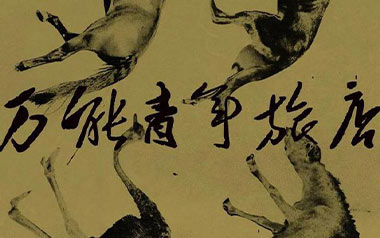 万能青年旅店